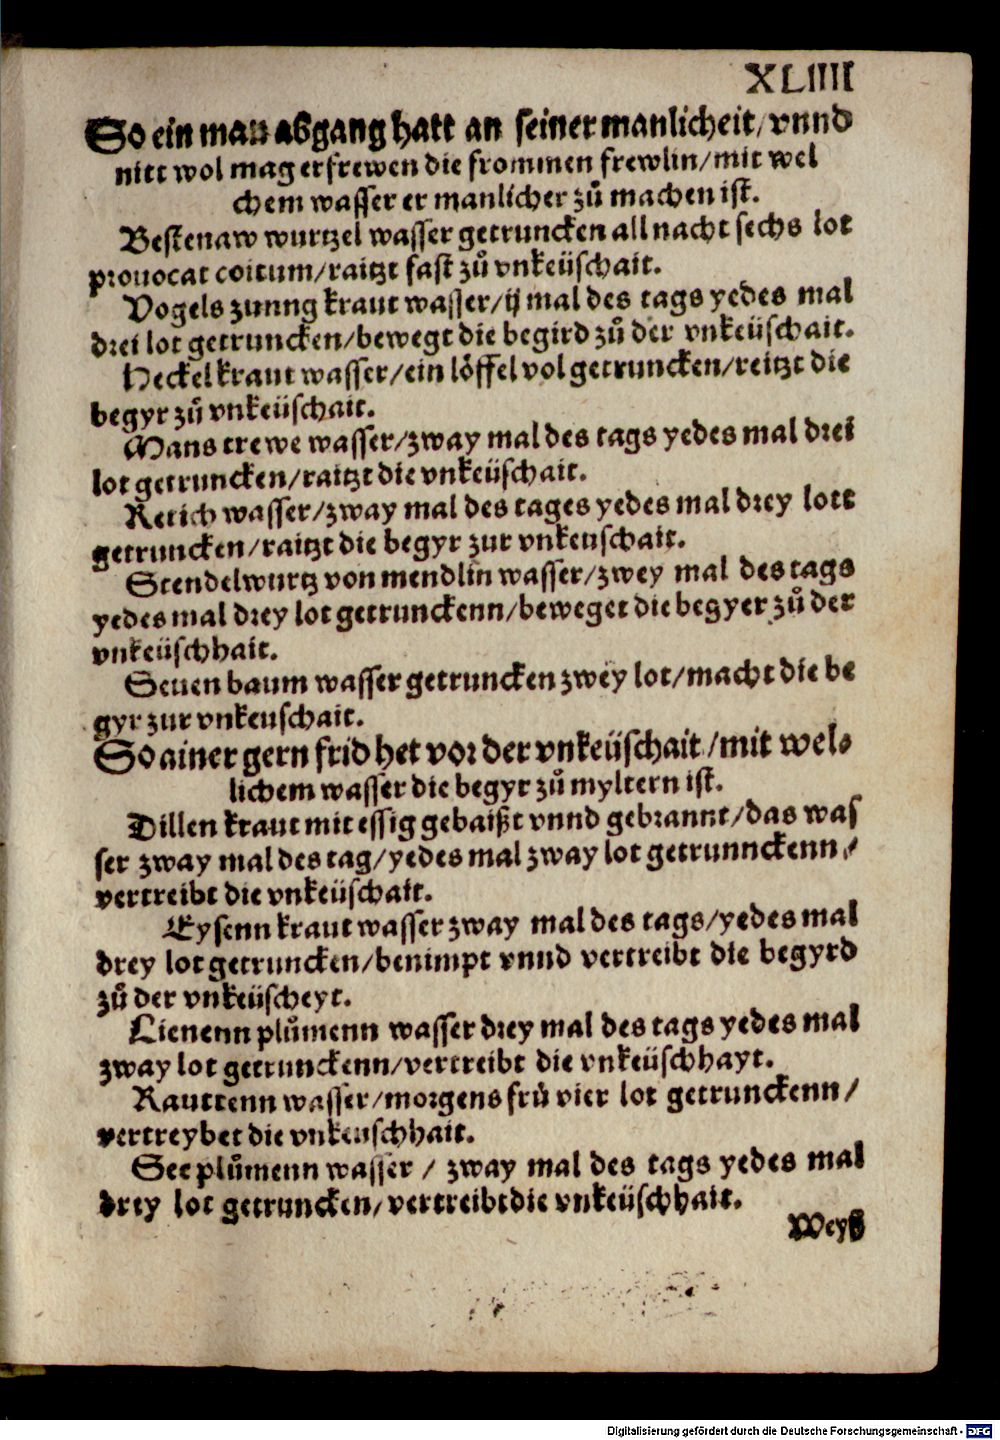 XLIIII
So ein man abgang hatt an seiner manlicheit/vnnd
nitt wol mag erfrewen die frommen frewlin/mit wel
chem wasser er manlicher zů machen ist.
Bestenaw wurtzel wasser getruncken all nacht sechs lot
prouocat coitum/raitzt fast zů vnkeüschait.
Vogels zunng kraut wasser/ij mal des tags yedes mal
drei lot getruncken/bewegt die begird zů der vnkeüschait.
Heckel kraut wasser/ein löffel vol getruncken/reitzt die
begyr zů vnkeüschait.
Mans trewe wasser/zway mal des tags yedes mal drei
lot getruncken/raitzt die vnkeüschait.
Retich wasser/zway mal des tages yedes mal drey lott
getruncken/raitzt die begyr zur vnkeuschait.
Stendelwurtz von mendlin wasser/zwey mal des tags
yedes mal drey lot getrunckenn/beweget die begyer zů der
vnkeüschhait.
Seuen baum wasser getruncken zwey lot/macht die be
gyr zur vnkeuschait.
So ainer gern frid het vor der vnkeüschait/mit wel-
lichem wasser die begyr zů myltern ist.
Dillen kraut mit essig gebaißt vnnd gebrannt/das was
ser zway mal des tag/yedes mal zway lot getrunnckenn/
vertreibt die vnkeüschait.
Eysenn kraut wasser zway mal des tags/yedes mal
drey lot getruncken/benimpt vnnd vertreibt die begyrd
zů der vnkeüscheyt.
Lienenn plůmenn wasser drey mal des tags yedes mal
zway lot getrunckenn/vertreibt die vnkeüschhayt.
Rauttenn wasser/morgens frů vier lot getrunckenn/
vertreybet die vnkeuschhait.
See plůmenn wasser/zway mal des tags yedes mal
drey lot getruncken/vertreibt die vnkeüschhait.
Weyß
Digitalisierung gefördert durch die Deutsche Forschungsgemeinschaft - DFG